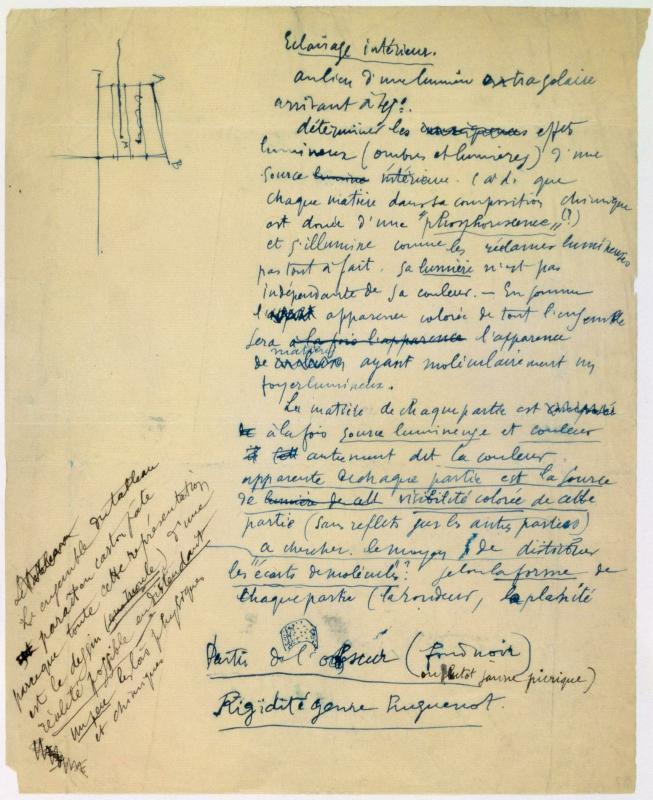 Eclairage intérieur.
au lieu d'une lumière extrasolaire
arrivant à 45°.
déterminer les effets
lumineux (ombres et lumières) d'une
source lumine intérieure. c à d. que
chaque matière dans sa composition chimique
est douée d'une "phosphorescence" (?)
et s'illumine comme les réclames lumineuses
pas tout à fait. Sa lumière n'est pas
indépendante de sa couleur. — En somme
l' apparence colorée de tout l'ensemble
sera à la fois l'apparence l'apparence
de matières ayant moléculairement un
foyer lumineux.
La matière de chaque partie est
à la fois source lumineuse et couleur
autrement dit la couleur
apparente de chaque partie est la source
de lumière de cell visibilité colorée de cette
partie (sans reflets sur les autres parties)
a chercher. le moyen de distribuer
les "écarts de molécules"? selon la forme de
chaque partie (la rondeur, la platité
Partir de l'obscur (fond noir)
ou plutot jaune picrique)
Rigidité genre Huguenot.
Le
Le ensemble du tableau
paraît en carton pâte
parce que toute cette représentation
est le dessin d'une
réalité possible en distendant
un peu les lois physiques
et chimiques